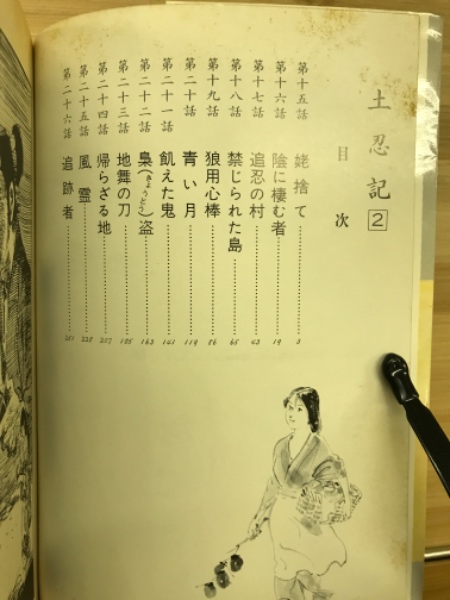 土忍記 2
目次
第十五話 姥捨て 3
第十六話 陰に棲む者 19
第十七話 追忍の村 43
第十八話 禁じられた島 65
第十九話 狼用心棒 86
第二十話 青い月 119
第二十一話 飢えた鬼 141
第二十二話 梟(きょうとう)盗 163
第二十三話 地舞の刀 185
第二十四話 帰らざる地 207
第二十五話 風霊 228
第二十六話 追跡者 251